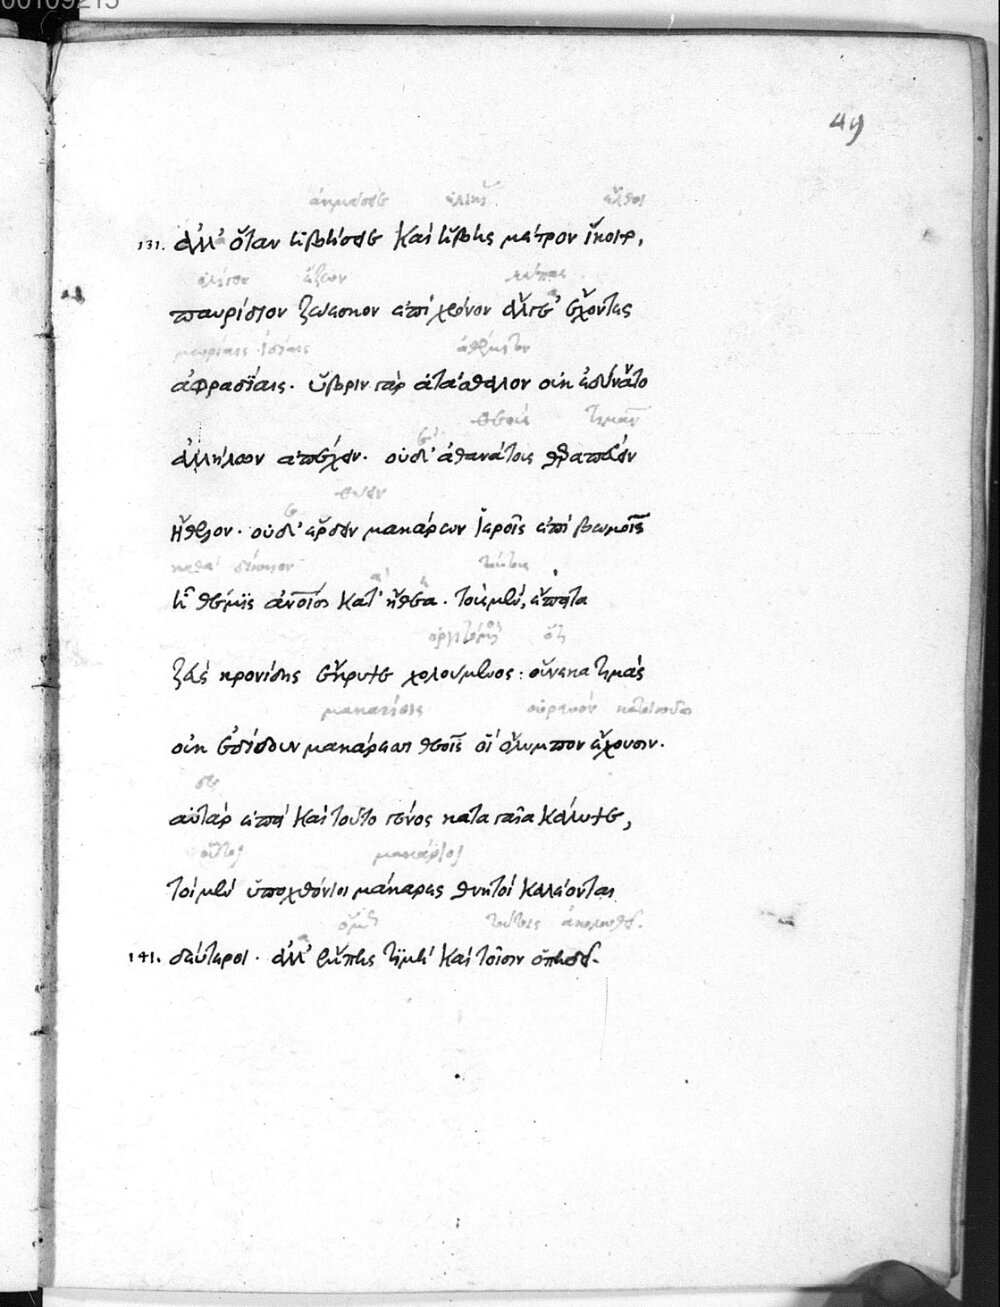 49
ἀκμάσειε ἡλικίας ἔλθοι
131. ἀλλ' ὅταν ἡβήσειε καὶ ἥβης μέτρον ἵκοιτο,
ὀλίγον ἔζων λύπας
παυρίδιον ζώεσκον ἐπὶ χρόνον ἄλγε' ἔχοντες
μωρίαις ἰδίαις
ἀφραδίαις. ὕβριν γὰρ ἀτάσθαλον οὐκ ἐδύναντο
θεοὺς τιμᾶν
ἀλλήλων ἀπέχειν. οὐδ' ἀθανάτους θεραπεύειν
θύειν
ἤθελον. οὐδ' ἔρδειν μακάρων ἱεροῖς ἐπὶ βωμοῖς
καθὰ δίκαιον τούτους
ἣ θέμις ἀνθρώποις κατ' ἤθεα. τοὺς μὲν, ἔπειτα
ὀργιζόμενος ὅτι
ζεὺς κρονίδης ἔκρυψε χολούμενος: οὕνεκα τιμὰς
οὐρανὸν κατοικοῦσιν
οὐκ ἐδίδουν μακάρεσσι θεοῖς οἳ ὄλυμπον ἔχουσιν.
δὲ
αὐτὰρ ἐπεὶ καὶ τοῦτο γένος κατὰ γαῖα κάλυψε,
οὗτοι μακάριοι
τοὶ μὲν ὑποχθόνιοι μάκαρες θνητοὶ καλέονται
ὅμως τούτοις ἀκολουθεῖ.
141. δεύτεροι. ἀλλ' ἔμπης τιμὴ καὶ τοῖσιν ὀπηδεῖ.